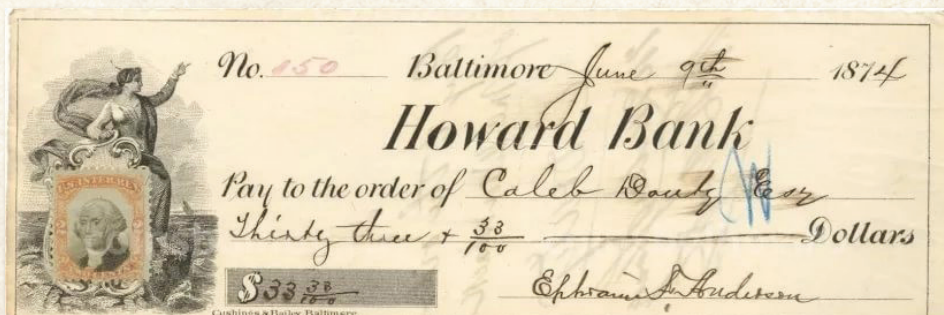 No. 150 Baltimore June 9th 1874
Howard Bank
Pay to the order of Caleb Douty Esq
Thirty three + 33/100 Dollars
$33 33/100
Ephraim Anderson
Cushings & Bailey, Baltimore
U.S. INTER. REV.